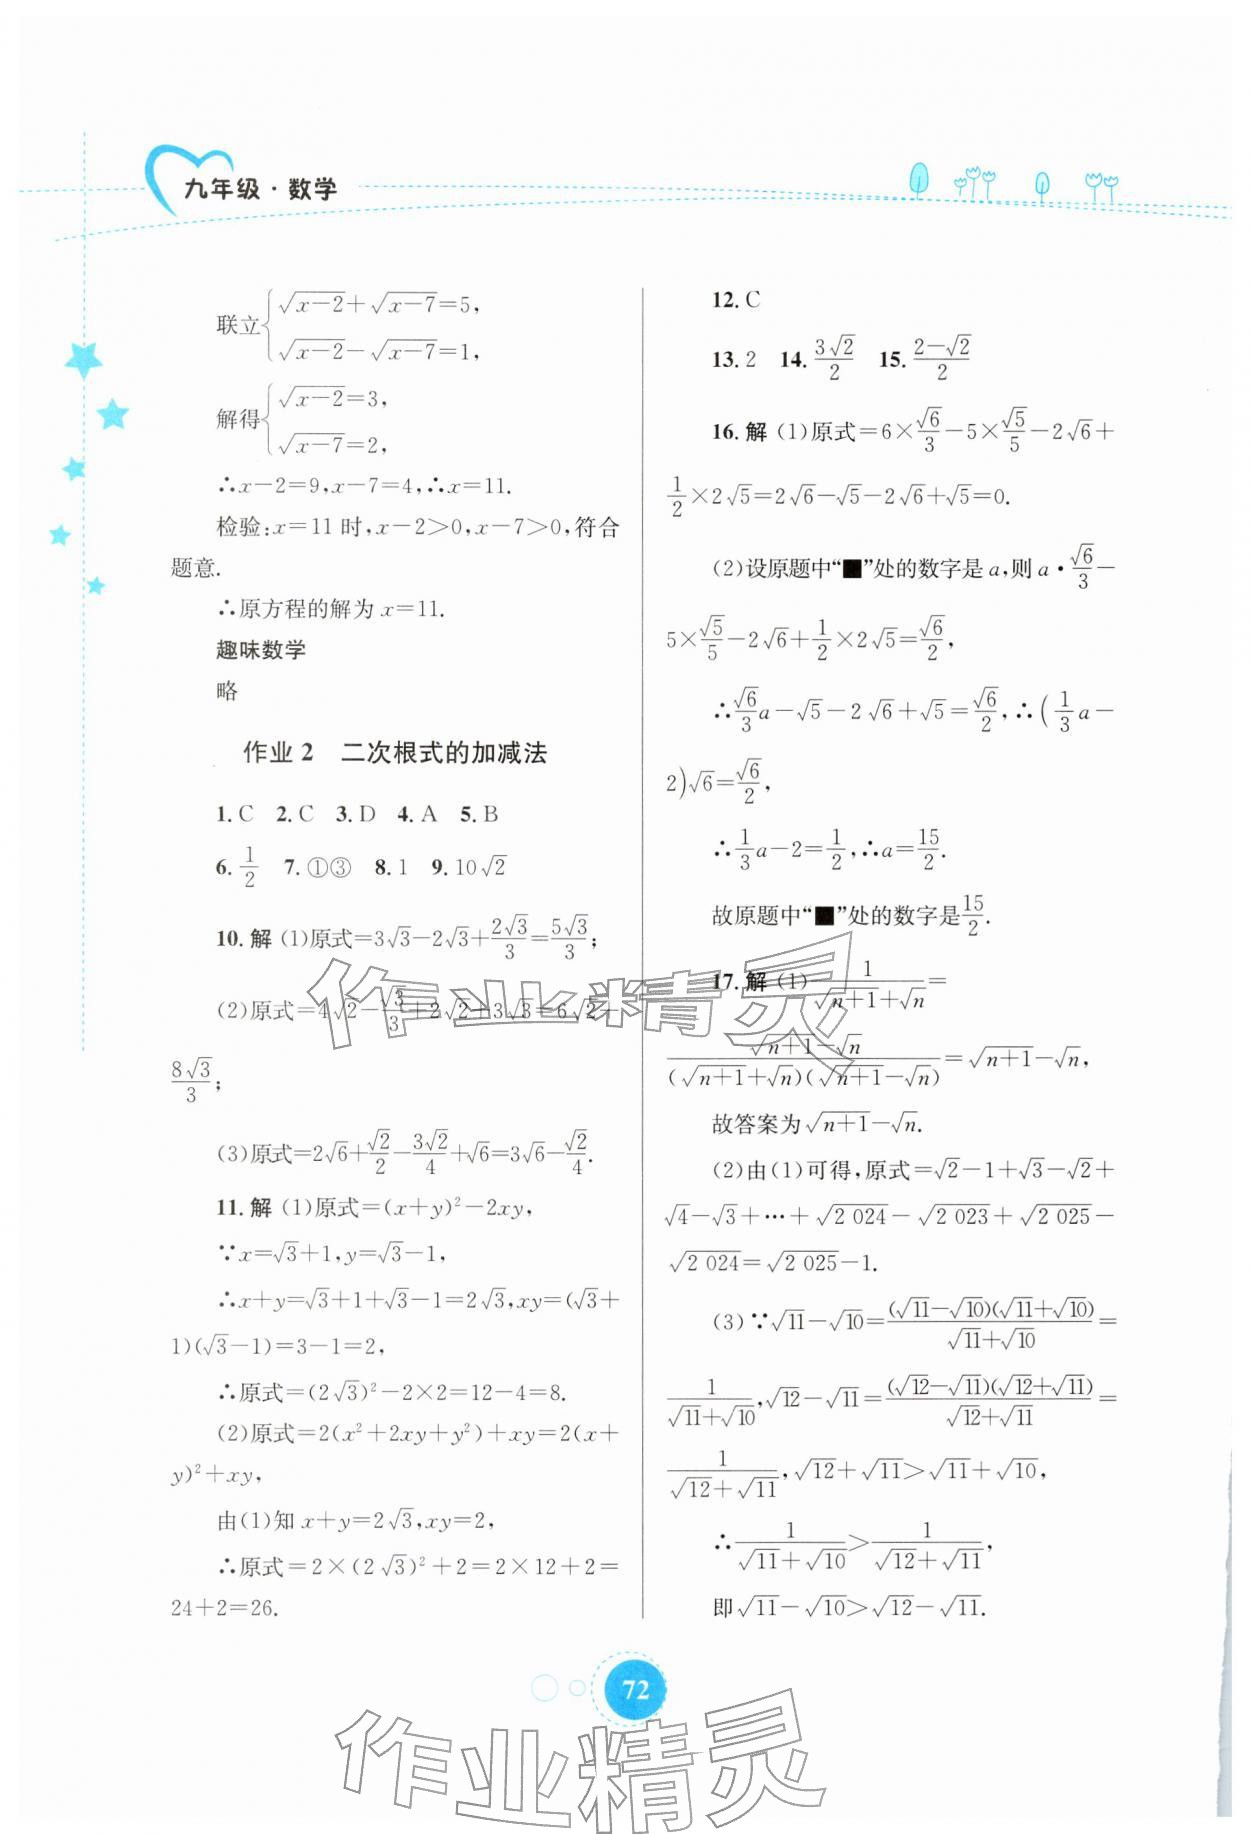 九年级·数学
联立{√(x-2)+√(x-7)=5,
√(x-2)-√(x-7)=1,
解得{√(x-2)=3,
√(x-7)=2,
∴x-2=9,x-7=4,∴x=11.
检验:x=11时,x-2>0,x-7>0,符合
题意.
∴原方程的解为x=11.
趣味数学
略
作业2 二次根式的加减法
1.C 2.C 3.D 4.A 5.B
6.1/2 7.①③ 8.1 9.10√2
10.解 (1)原式=3√3-2√3+2√3/3=5√3/3;
(2)原式=4√2-√3/3+2√2+3√3=6√2-
8√3/3;
(3)原式=2√6+√2/2-3√2/4+√6=3√6-√2/4.
11.解 (1)原式=(x+y)²-2xy,
∵x=√3+1,y=√3-1,
∴x+y=√3+1+√3-1=2√3,xy=(√3+
1)(√3-1)=3-1=2,
∴原式=(2√3)²-2×2=12-4=8.
(2)原式=2(x²+2xy+y²)+xy=2(x+
y)²+xy,
由(1)知x+y=2√3,xy=2,
∴原式=2×(2√3)²+2=2×12+2=
24+2=26.
12.C
13.2 14.3√2/2 15.(2-√2)/2
16.解 (1)原式=6×√6/3-5×√5/5-2√6+
1/2×2√5=2√6-√5-2√6+√5=0.
(2)设原题中“■”处的数字是a,则a·√6/3-
5×√5/5-2√6+1/2×2√5=√6/2,
∴√6/3a-√5-2√6+√5=√6/2,∴(1/3a-
2)√6=√6/2,
∴1/3a-2=1/2,∴a=15/2.
故原题中“■”处的数字是15/2.
17.解 (1)1/(√(n+1)+√n)=
(√(n+1)-√n)/((√(n+1)+√n)(√(n+1)-√n))=√(n+1)-√n,
故答案为√(n+1)-√n.
(2)由(1)可得,原式=√2-1+√3-√2+
√4-√3+…+√2 024-√2 023+√2 025-
√2 024=√2 025-1.
(3)∵√11-√10=(√11-√10)(√11+√10)/(√11+√10)=
1/(√11+√10),√12-√11=(√12-√11)(√12+√11)/(√12+√11)=
1/(√12+√11),√12+√11>√11+√10,
∴1/(√11+√10)>1/(√12+√11),
即√11-√10>√12-√11.
72
作业精灵
作业精灵